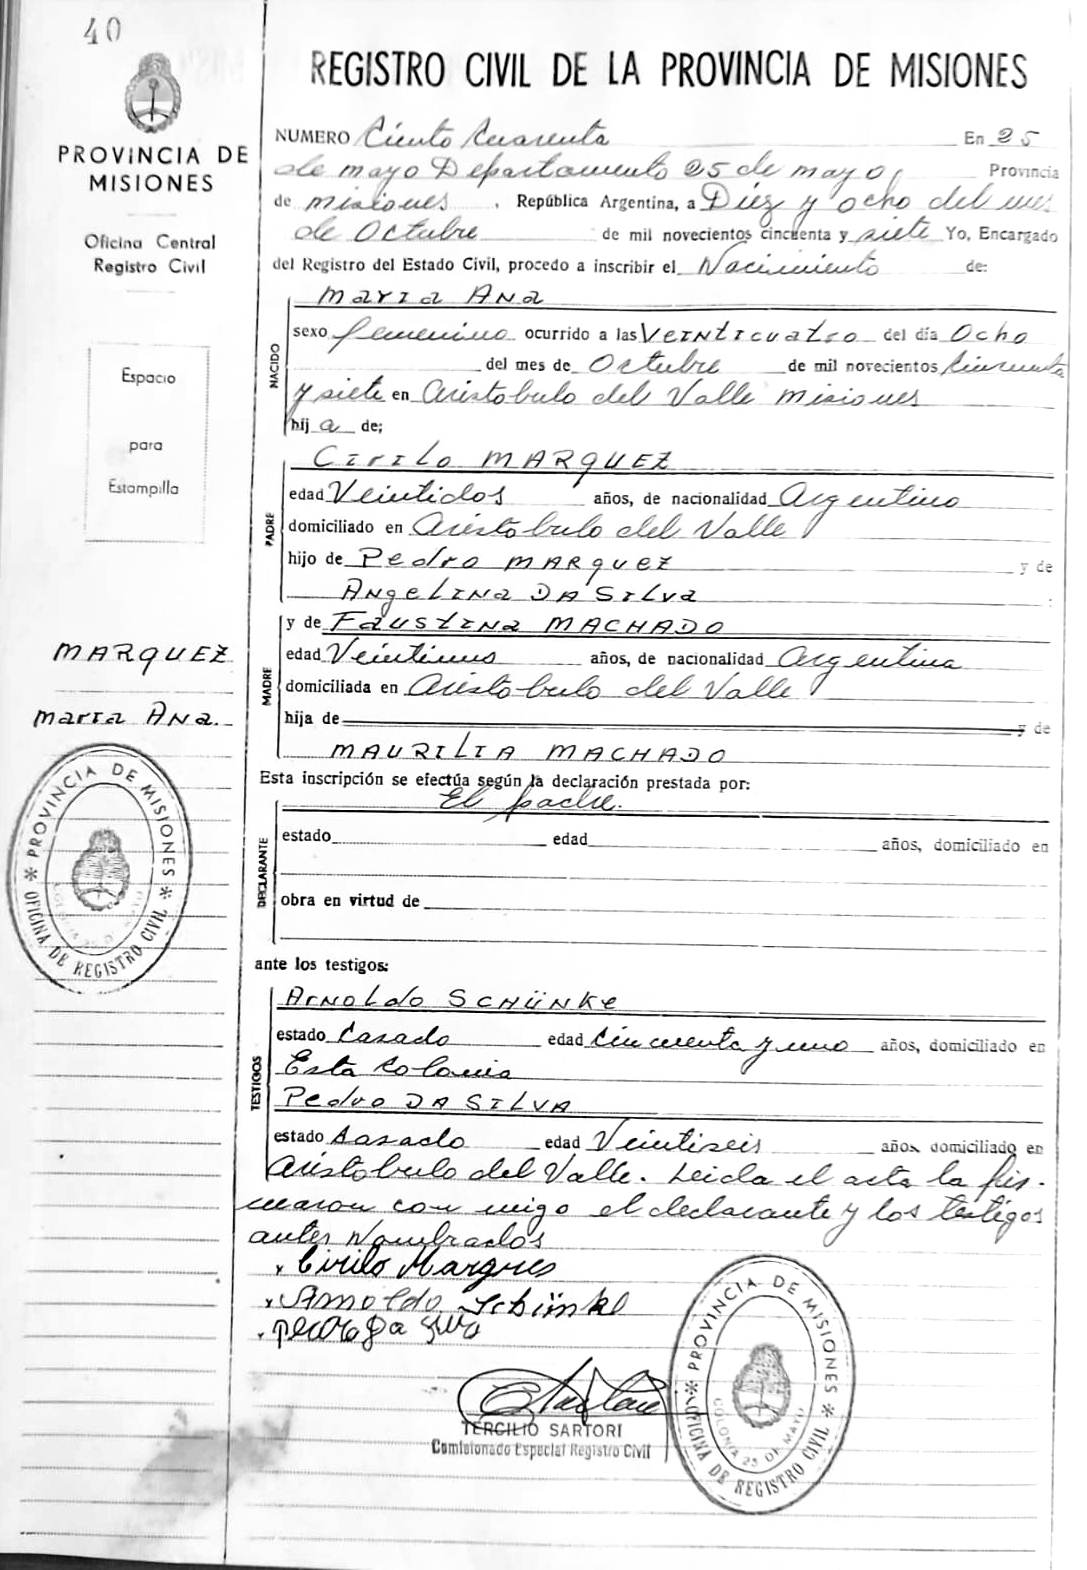 40
PROVINCIA DE
MISIONES
Oficina Central
Registro Civil
Espacio
para
Estampilla
MARQUEZ
María Ana.
PROVINCIA DE MISIONES
OFICINA DE REGISTRO CIVIL
REGISTRO CIVIL DE LA PROVINCIA DE MISIONES
NUMERO Ciento Cuarenta En 25
de mayo Departamento 25 de mayo, Provincia
de misiones, República Argentina, a Diéz y ocho del mes
de Octubre de mil novecientos cincuenta y siete Yo, Encargado
del Registro del Estado Civil, procedo a inscribir el Nacimiento de:
María Ana
NACIDO
sexo femenino ocurrido a las Veinticuatro del día Ocho
del mes de Octubre de mil novecientos Cincuenta
y siete en Aristobulo del Valle misiones
hij a de;
Cirilo MARQUEZ
PADRE
edad Veintidos años, de nacionalidad Argentino
domiciliado en Aristobulo del Valle
hijo de Pedro MARQUEZ y de
Angelina DA SILVA
MADRE
y de Faustina MACHADO
edad Veintiuno años, de nacionalidad Argentina
domiciliada en Aristobulo del Valle
hija de y de
MAURILIA MACHADO
Esta inscripción se efectúa según la declaración prestada por:
El padre.
DECLARANTE
estado edad años, domiciliado en
obra en virtud de
ante los testigos:
TESTIGOS
Arnoldo SCHÜNKE
estado Casado edad Cincuenta y uno años, domiciliado en
Esta Colonia
Pedro DA SILVA
estado Casado edad Veintiseis años, domiciliado en
Aristobulo del Valle. Leida el acta la fir-
maron con migo el declarante y los testigos
antes Nombrados
x Cirilo Marques
x Arnoldo Schünke
x pedro Da silva
TERCILIO SARTORI
Comisionado Especial Registro Civil
PROVINCIA DE MISIONES
COLONIA 25 DE MAYO
OFICINA DE REGISTRO CIVIL